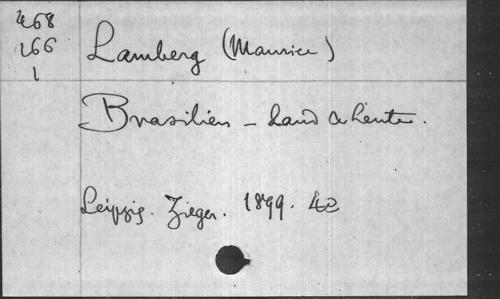 468
166
1
Lamberg (Maurice)
Brasilien - Land & Leute.
Leipzig. Zieger. 1899. 4o